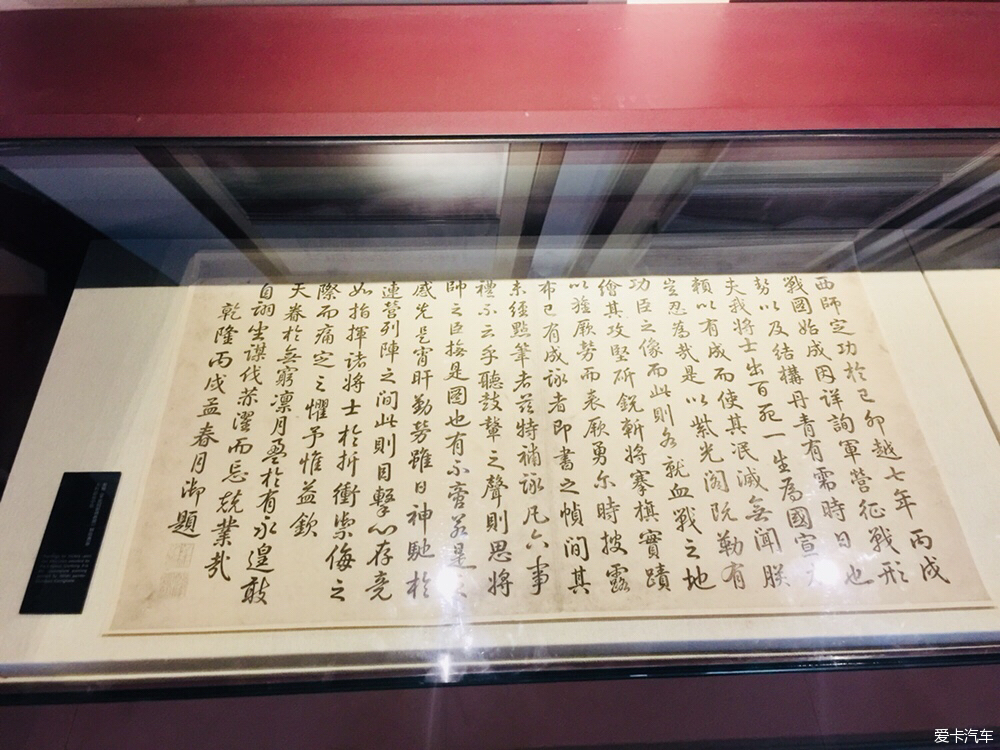 西師定功於己卯越七年丙戌
戰圖始成因詳詢軍營征戰形
勢以及結構丹青有需時日也
夫我將士出百死一生為國宣
賴以有成而使其泯滅無聞朕
豈忍為哉是以紫光閣既勒有
功臣之像而此則各就血戰之地
繪其攻堅斫銳斬將搴旗實蹟
以旌厥勞而表厥勇爾時披露
布已有成詠者即書之幀間其
未經點筆者茲特補詠凡六事
禮不云乎聽鼓鼙之聲則思將
帥之臣撫是圖也有不啻若是
感先是宵旰勤勞雖日神馳於
連營列陣之間此則目擊心存竟
如指揮諸將士於折衝禦侮之
際而痛定之懼予惟益欽
天眷於無窮凜月盈於有永遑敢
自詡坐謀伐濯而忘兢業哉
乾隆丙戌孟春月御題
爱卡汽车